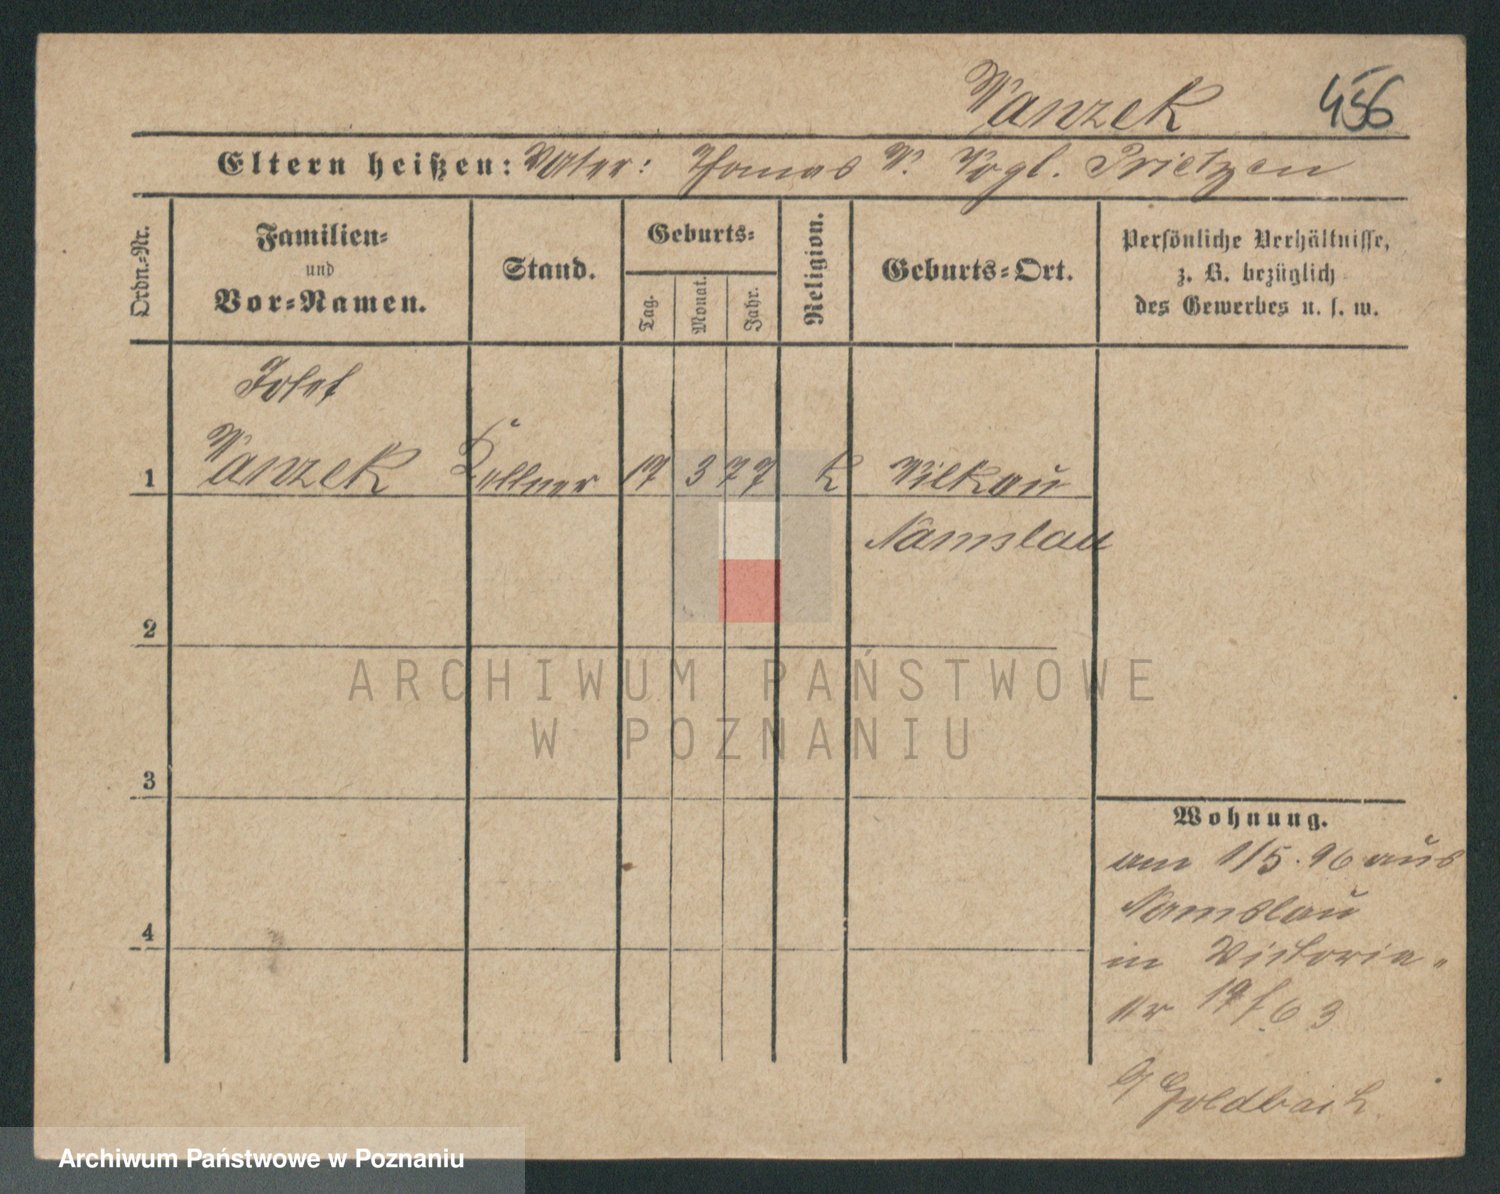 Wanzek
456
Eltern heißen: Vater: Thomas W. Vogl. Prietzen
Ordn.-Nr.
Familien-
und
Vor-Namen.
Stand.
Geburts-
Tag.
Monat.
Jahr.
Religion.
Geburts-Ort.
Persönliche Verhältnisse,
z. B. bezüglich
des Gewerbes u. s. w.
Josef
1 Wanzek Kellner 17 3 77 k Wilkau
Namslau
2
ARCHIWUM PAŃSTWOWE
W POZNANIU
3
Wohnung.
am 1/5. 96 aus
Namslau
4
in Victoria-
Nr 63
Goldbach
Archiwum Państwowe w Poznaniu